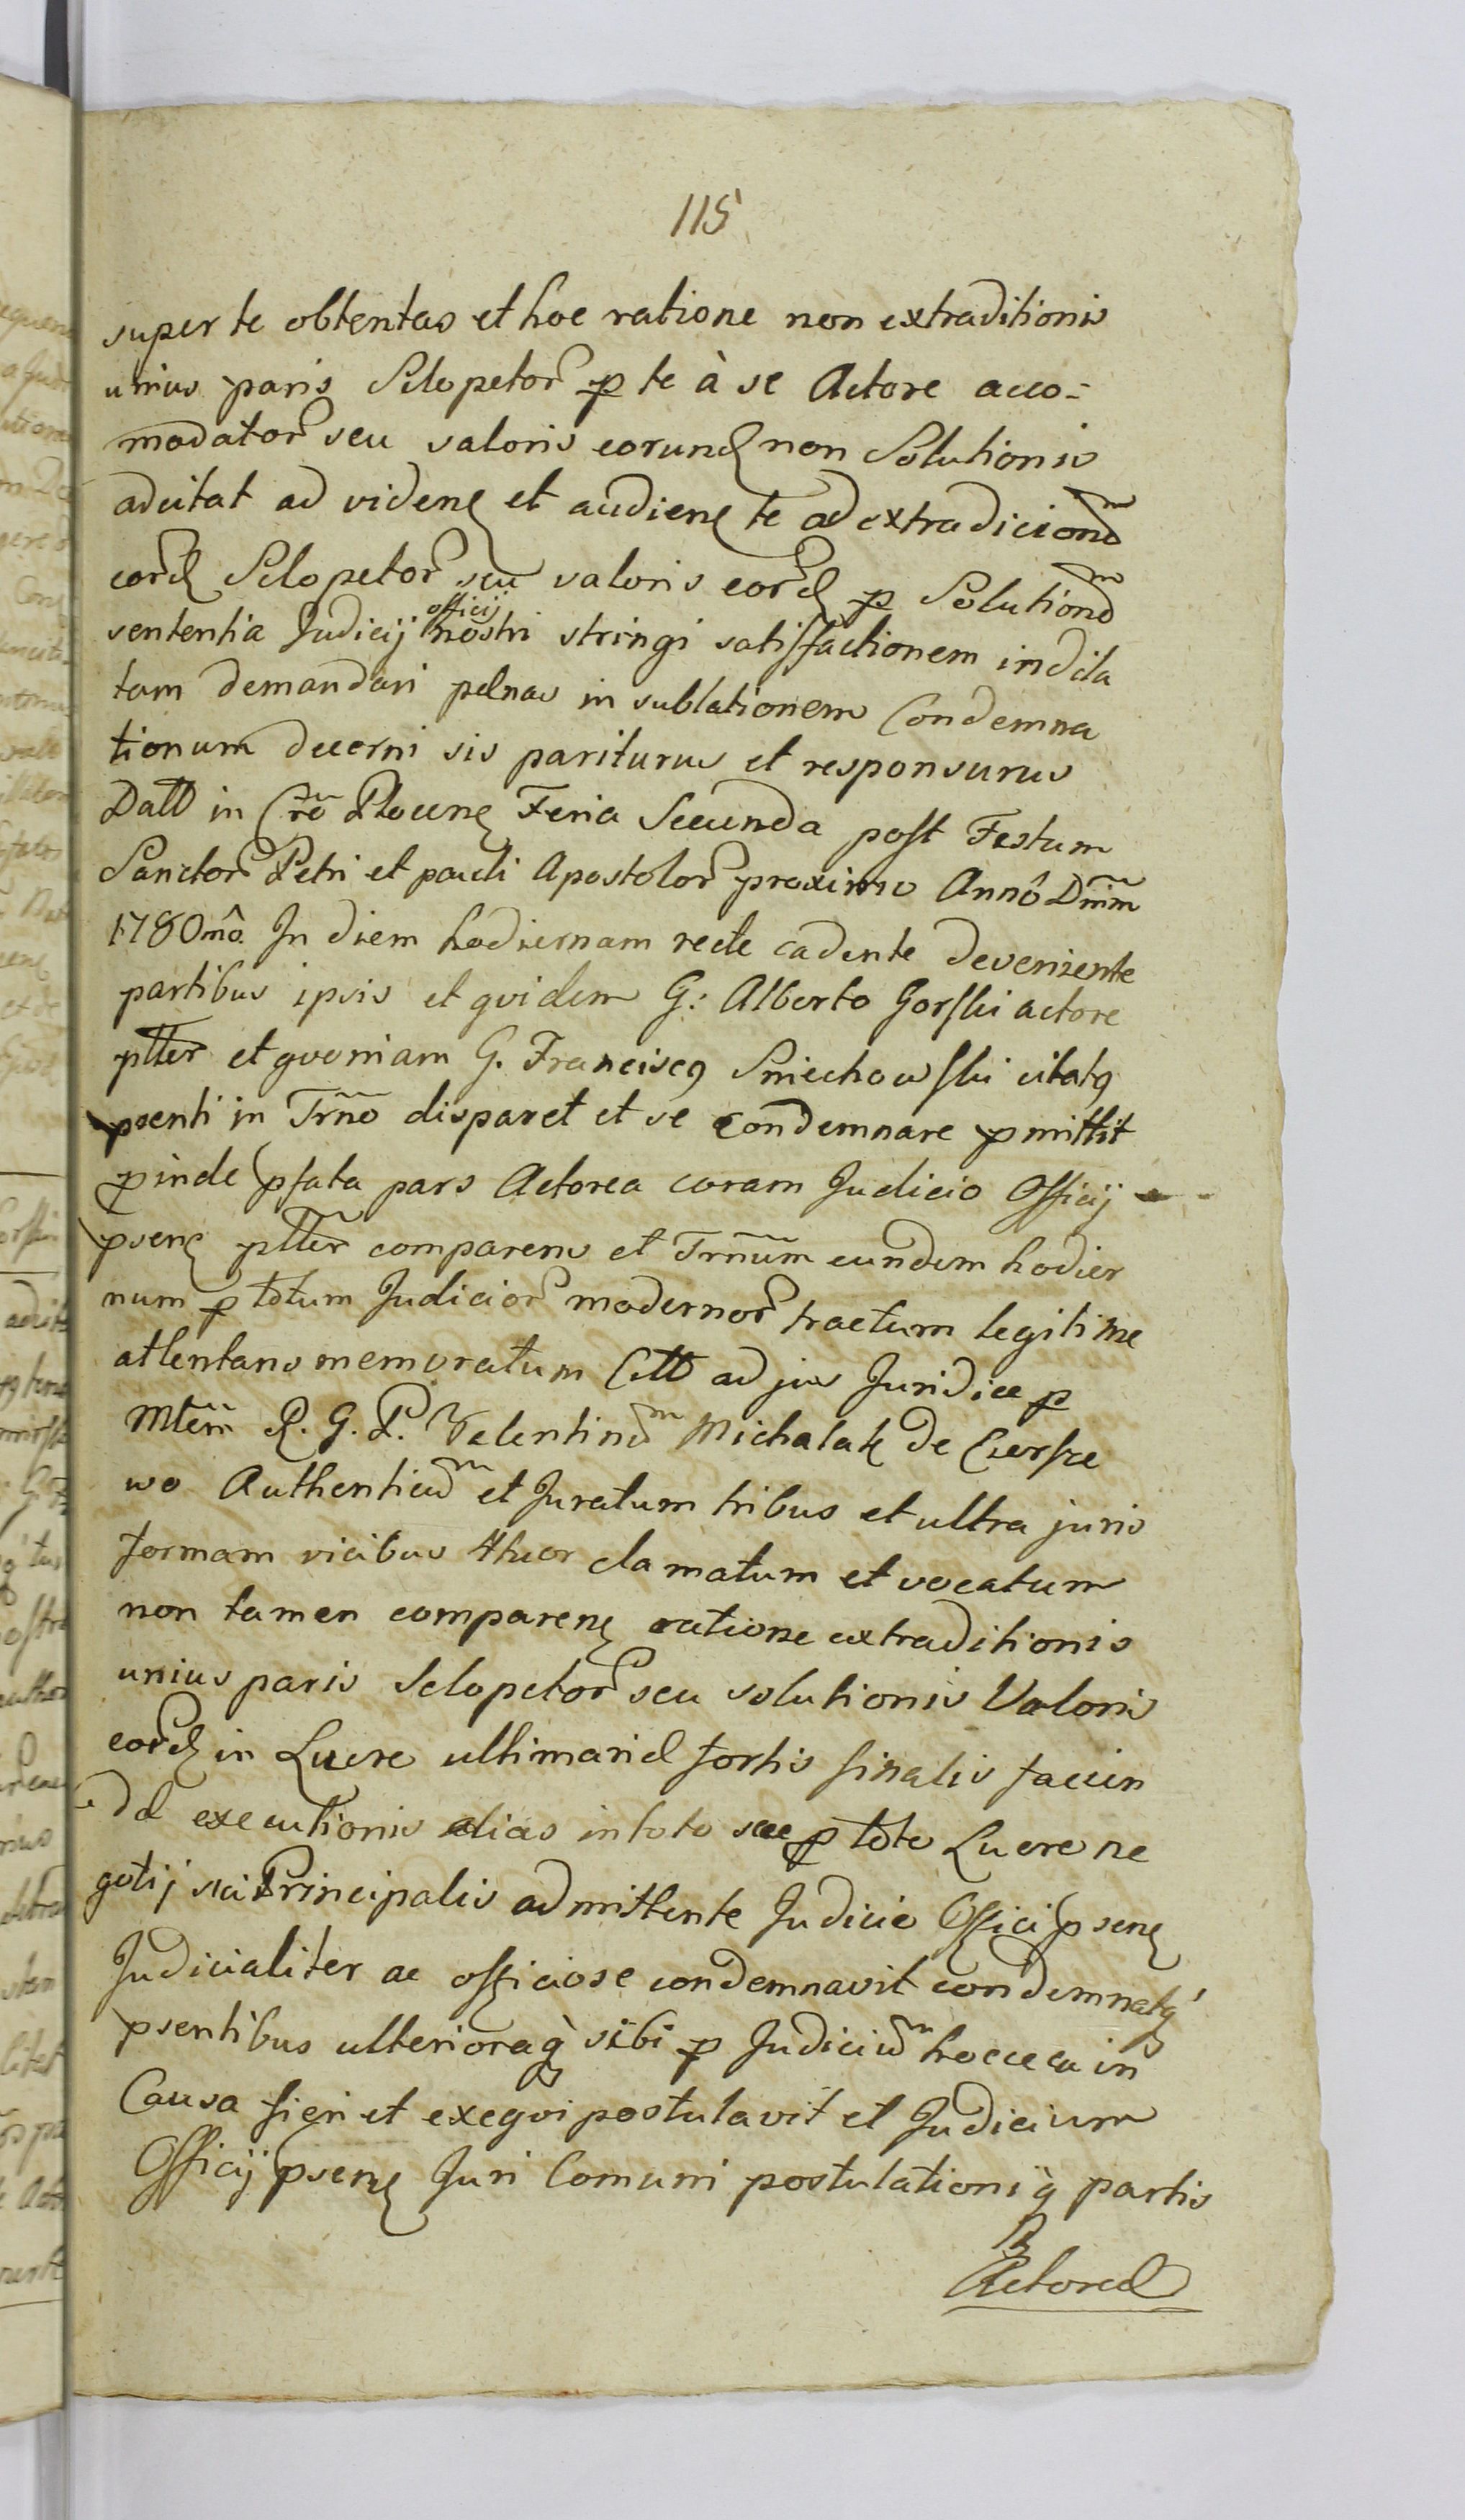 115
super te obtentas et hoc ratione non extraditionis
unius paris Sclopetor p te à se Actore acco-
modator seu valoris eorund non Solutionis
adcitat ad videne et audiene te ad extradicionem
eord Sclopetor seu valoris eord p Solutionem
sententia Judicij officij nostri stringi satisfactionem indila
tam demandari pænas in sublationem Condemna
tionum decerni sis pariturus et responsurus
Datt in Cro Plocen Feria Secunda post Festum
Sanctor Petri et pauli Apostolor proximo Annô Dnim
1780mô. In diem hodiernam recte cadente deveniente
partibus ipsis et qvidem G: Alberto Gorski actore
ptter et qvoniam G. Franciscq Sniechowski citatq
psenti in Trno disparet et se condemnare pmittit
pinde pfata pars Actorea coram Judicio Officij
psene ptter comparens et Trnum eundem hodier
num p totum Judicior modernor tractum legitime
attentans memoratum Citt ad jus Juridice p
Mtem R. G. P. Valentinum Michalak de Ciersze
wo Authenticum et Juratum tribus et ultra juris
formam vicibus ther clamatum et vocatum
non tamen comparene ratione extraditionis
unius paris Sclopetor seu solutionis Valoris
eord in Lucre ultimariæ sortis finalis facien
dæ executionis alias in toto sæ p toto Lucro ne
gotij sui Principalis admittente Judicio Offici psene
Judicialiter ac officiose condemnavit condemnatq
psentibus ulterioraq sibi p Judicium hocce ca in
Causa fieri et exeqvi postulavit et Judicium
Officij psene Juri Comuni postulationiq partis
Actoreæ